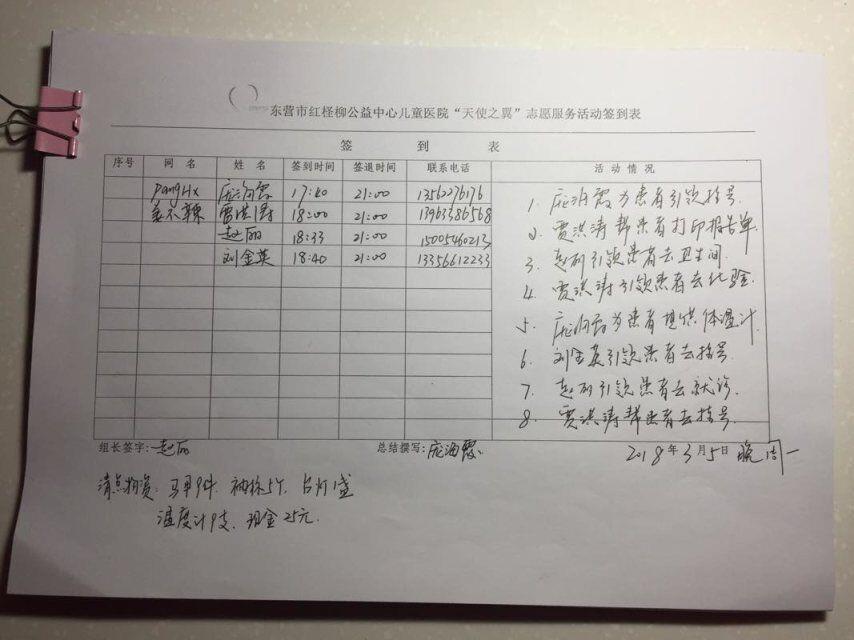 东营市红柽柳公益中心儿童医院“天使之翼”志愿服务活动签到表
签 到 表
序号 网 名 姓 名 签到时间 签退时间 联系电话 活 动 情 况
PangHx 庞海霞 17:40 21:00 13562276176
姜不辣 贾洪涛 18:00 21:00 13963386568
赵丽 18:33 21:00 15005460213
刘金英 18:40 21:00 13356612233
1. 庞海霞为患者引领挂号.
2. 贾洪涛帮患者打印报告单.
3. 赵丽引领患者去卫生间.
4. 贾洪涛引领患者去化验.
5. 庞海霞为患者提供体温计.
6. 刘金英引领患者去挂号.
7. 赵丽引领患者去就诊.
8. 贾洪涛帮患者去挂号.
组长签字:赵丽 总结撰写:庞海霞. 2018年3月5日 晚 周一
清点物资: 马甲9件. 袖标5个. 台灯1盏
温度计9支. 现金25元.